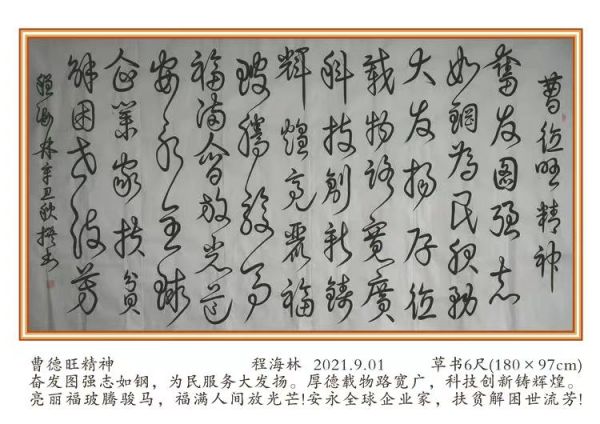 曹德旺精神
奮发图强志
如鋼為民服務
大发扬厚德
載物路寬廣
科技創新鑄
輝煌亮麗福
玻騰駿馬
福满人间放光芒
安永全球
企業家扶貧
解困世流芳
程海林辛丑秋撰书
曹德旺精神 程海林 2021.9.01 草书6尺(180×97cm)
奋发图强志如钢，为民服务大发扬。厚德载物路宽广，科技创新铸辉煌。
亮丽福玻腾骏马，福满人间放光芒!安永全球企业家，扶贫解困世流芳!